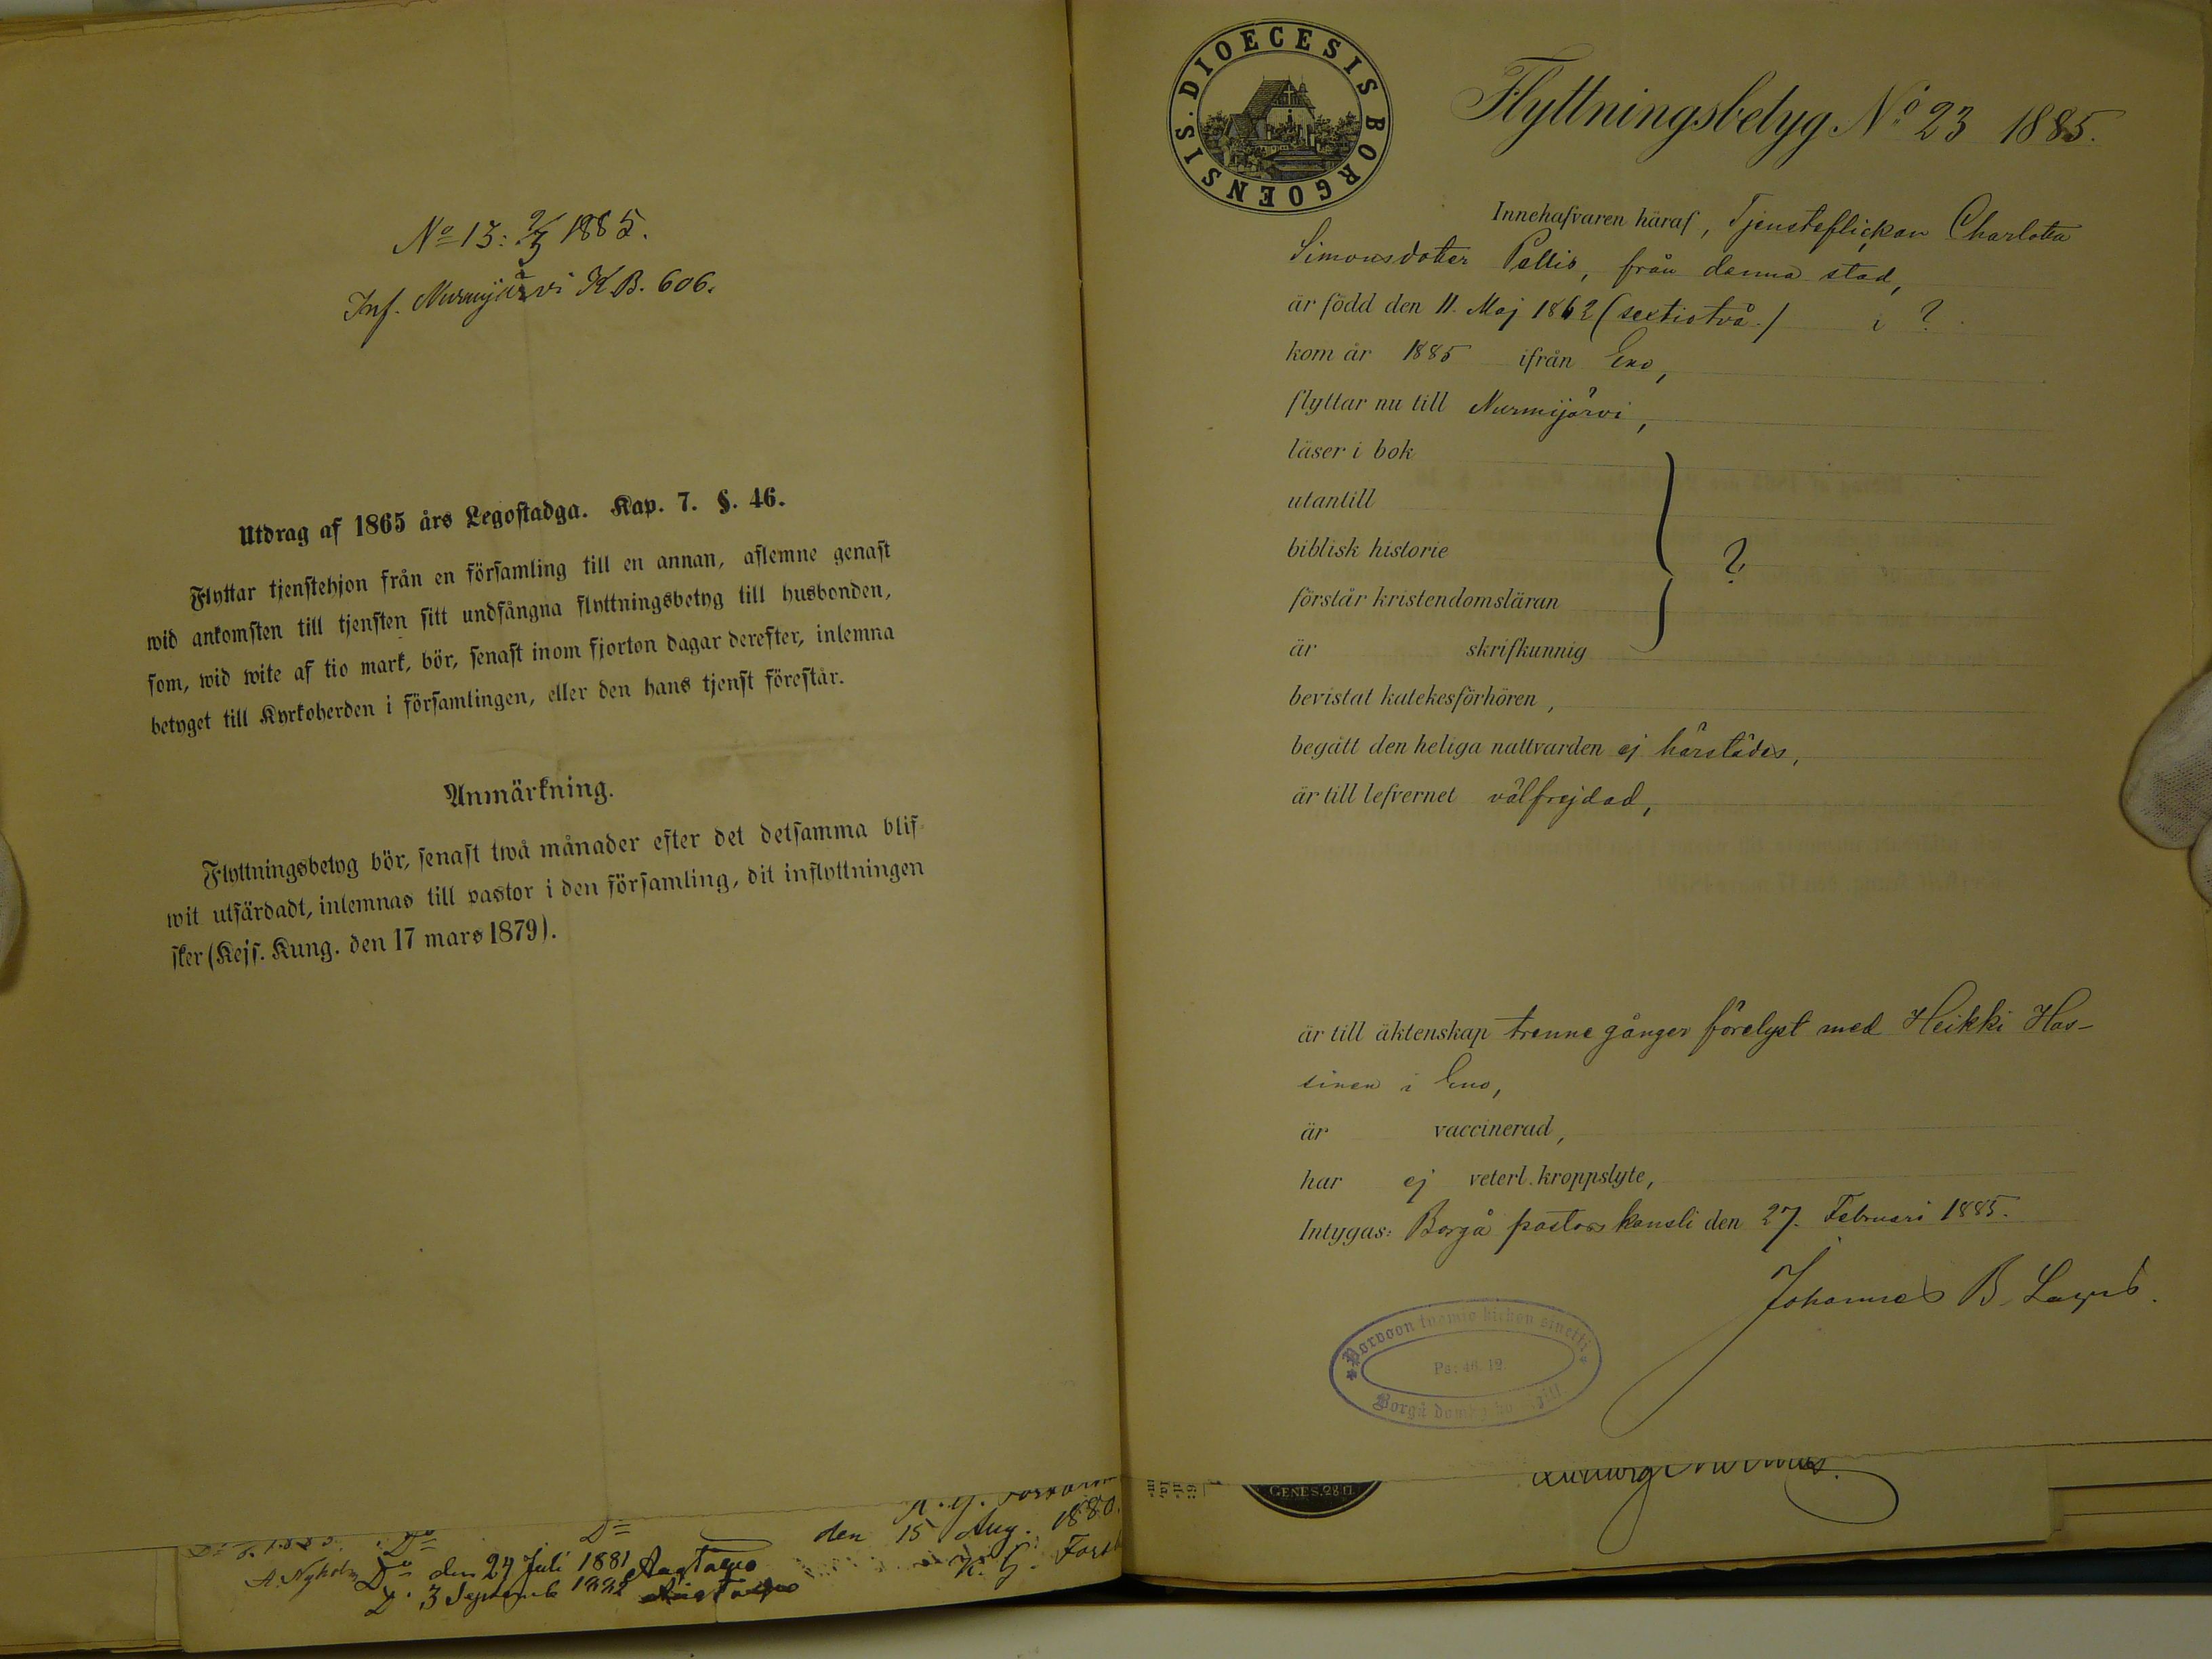 No 13: 9/3 1885.
Inf. Nurmijärvi K.B. 606.
Utdrag af 1865 års Legostadga. Kap. 7. §. 46.
Flyttar tjenstehjon från en församling till en annan, aflemne genast
wid ankomsten till tjensten sitt undfångna flyttningsbetyg till husbonden,
som, wid wite af tio mark, bör, senast inom fjorton dagar derefter, inlemna
betyget till Kyrkoherden i församlingen, eller den hans tjenst förestår.
Anmärkning.
Flyttningsbetyg bör, senast twå månader efter det detsamma blif-
wit utfärdadt, inlemnas till pastor i den församling, dit inflyttningen
sker (Kejs. Kung. den 17 mars 1879).
den 15 Aug. 1880.
A. Nyholm Do den 24 Juli 1881
D. 3 Septemb 1882
K. G.
DIOECESIS BORGOENSIS.
Flyttningsbetyg No 23 1885.
Innehafvaren häraf, Tjensteflickan Charlotta
Simonsdotter Pellis, från denna stad,
är född den 11. Maj 1862 (sextiotvå.) i ?
kom år 1885 ifrån Eno,
flyttar nu till Nurmijärvi,
läser i bok
utantill
biblisk historie ?
förstår kristendomsläran
är skrifkunnig
bevistat katekesförhören,
begått den heliga nattvarden ej härstädes,
är till lefvernet välfrejdad,
är till äktenskap trenne gånger förelyst med Heikki Has-
sinen i Eno,
är vaccinerad,
har ej veterl. kroppslyte,
Intygas: Borgå pastors kansli den 27. Februari 1885.
Johannes B.
Porvoon tuomio kirkon sinetti
Ps: 46. 12.
Borgå
GENES. 28. 17